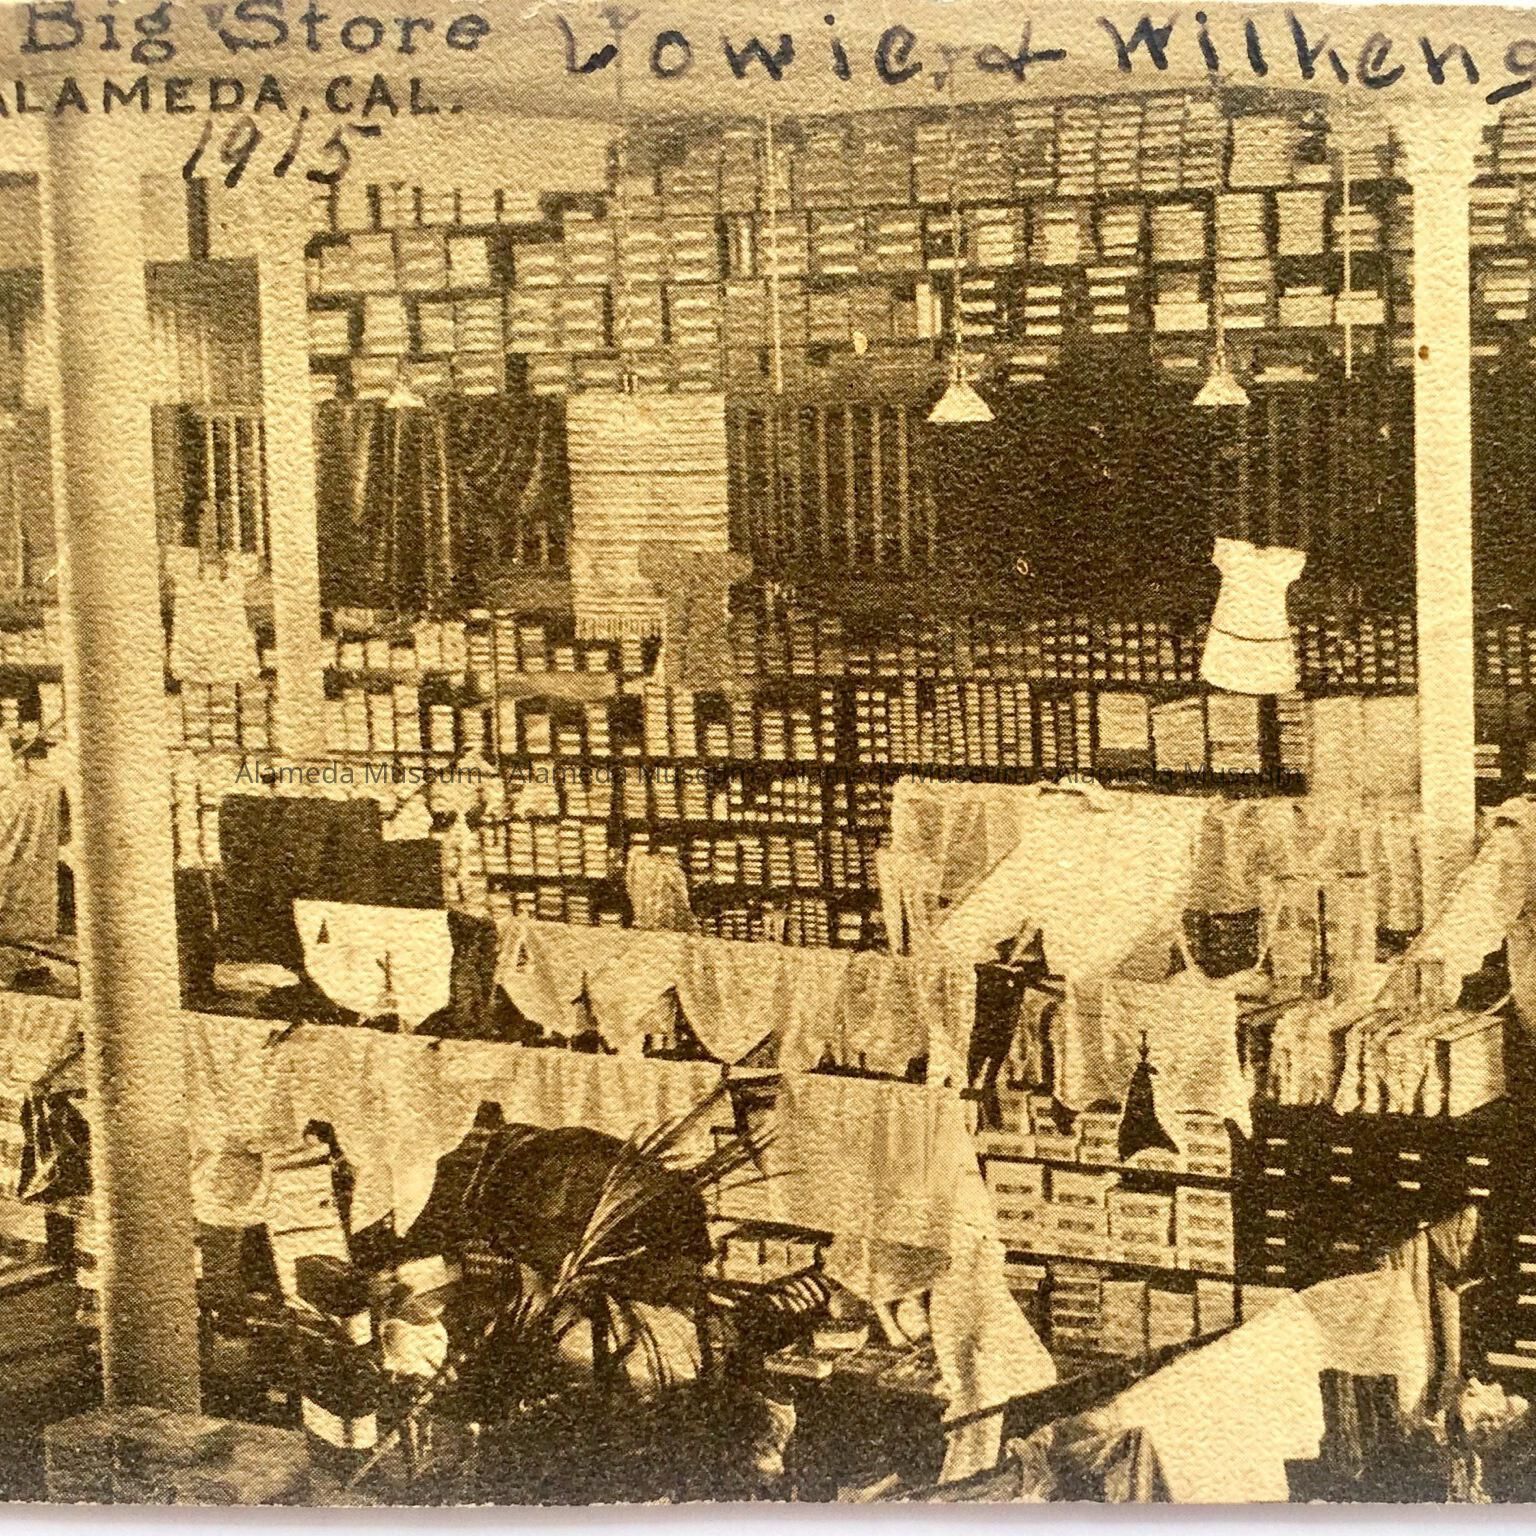 Big Store
ALAMEDA, CAL.
1915
Vowie & Wilkens
Alameda Museum - Alameda Museum - Alameda Museum - Alameda Museum